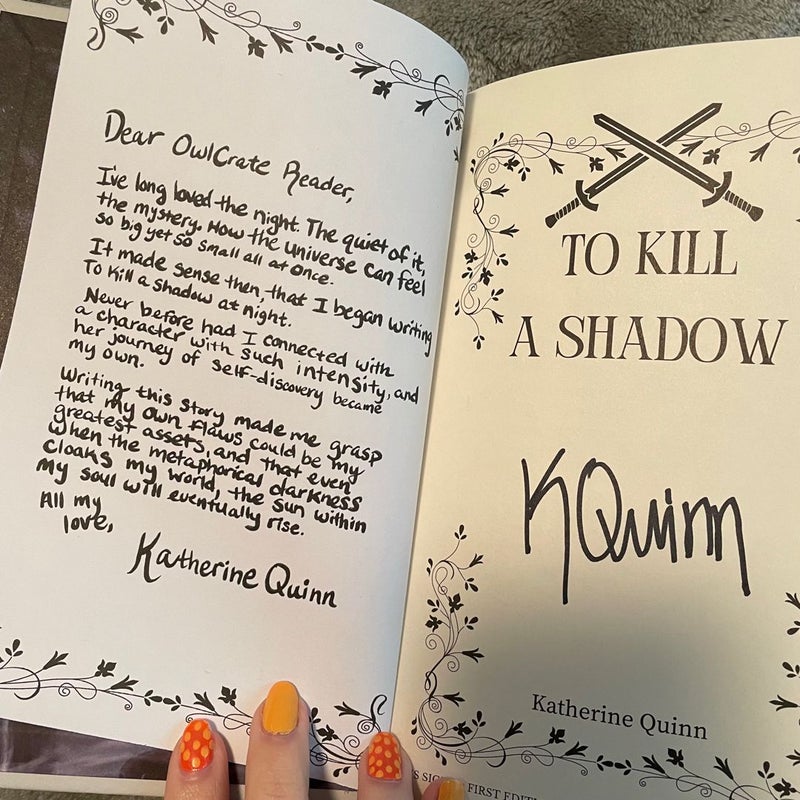 Dear OwlCrate Reader,
I've long loved the night. The quiet of it,
the mystery. How the universe can feel
so big yet so small all at once.
It made sense then, that I began writing
To Kill a Shadow at night.
Never before had I connected with
a character with such intensity, and
her journey of self-discovery became
my own.
Writing this story made me grasp
that my own flaws could be my
greatest assets, and that even
when the metaphorical darkness
cloaks my world, the sun within
my soul will eventually rise.
All my
love,
Katherine Quinn
TO KILL
A SHADOW
K Quinn
Katherine Quinn
FIRST